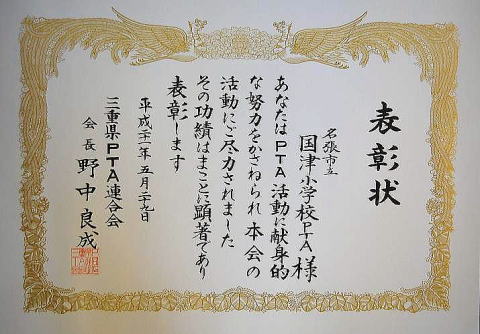 表彰状
名張市立
国津小学校PTA様
あなたはPTA活動に献身的
な努力をかさねられ本会の
活動にご尽力されました
その功績はまことに顕著であり
表彰します
平成二一年五月二十九日
三重県PTA連合会
会長 野中良成